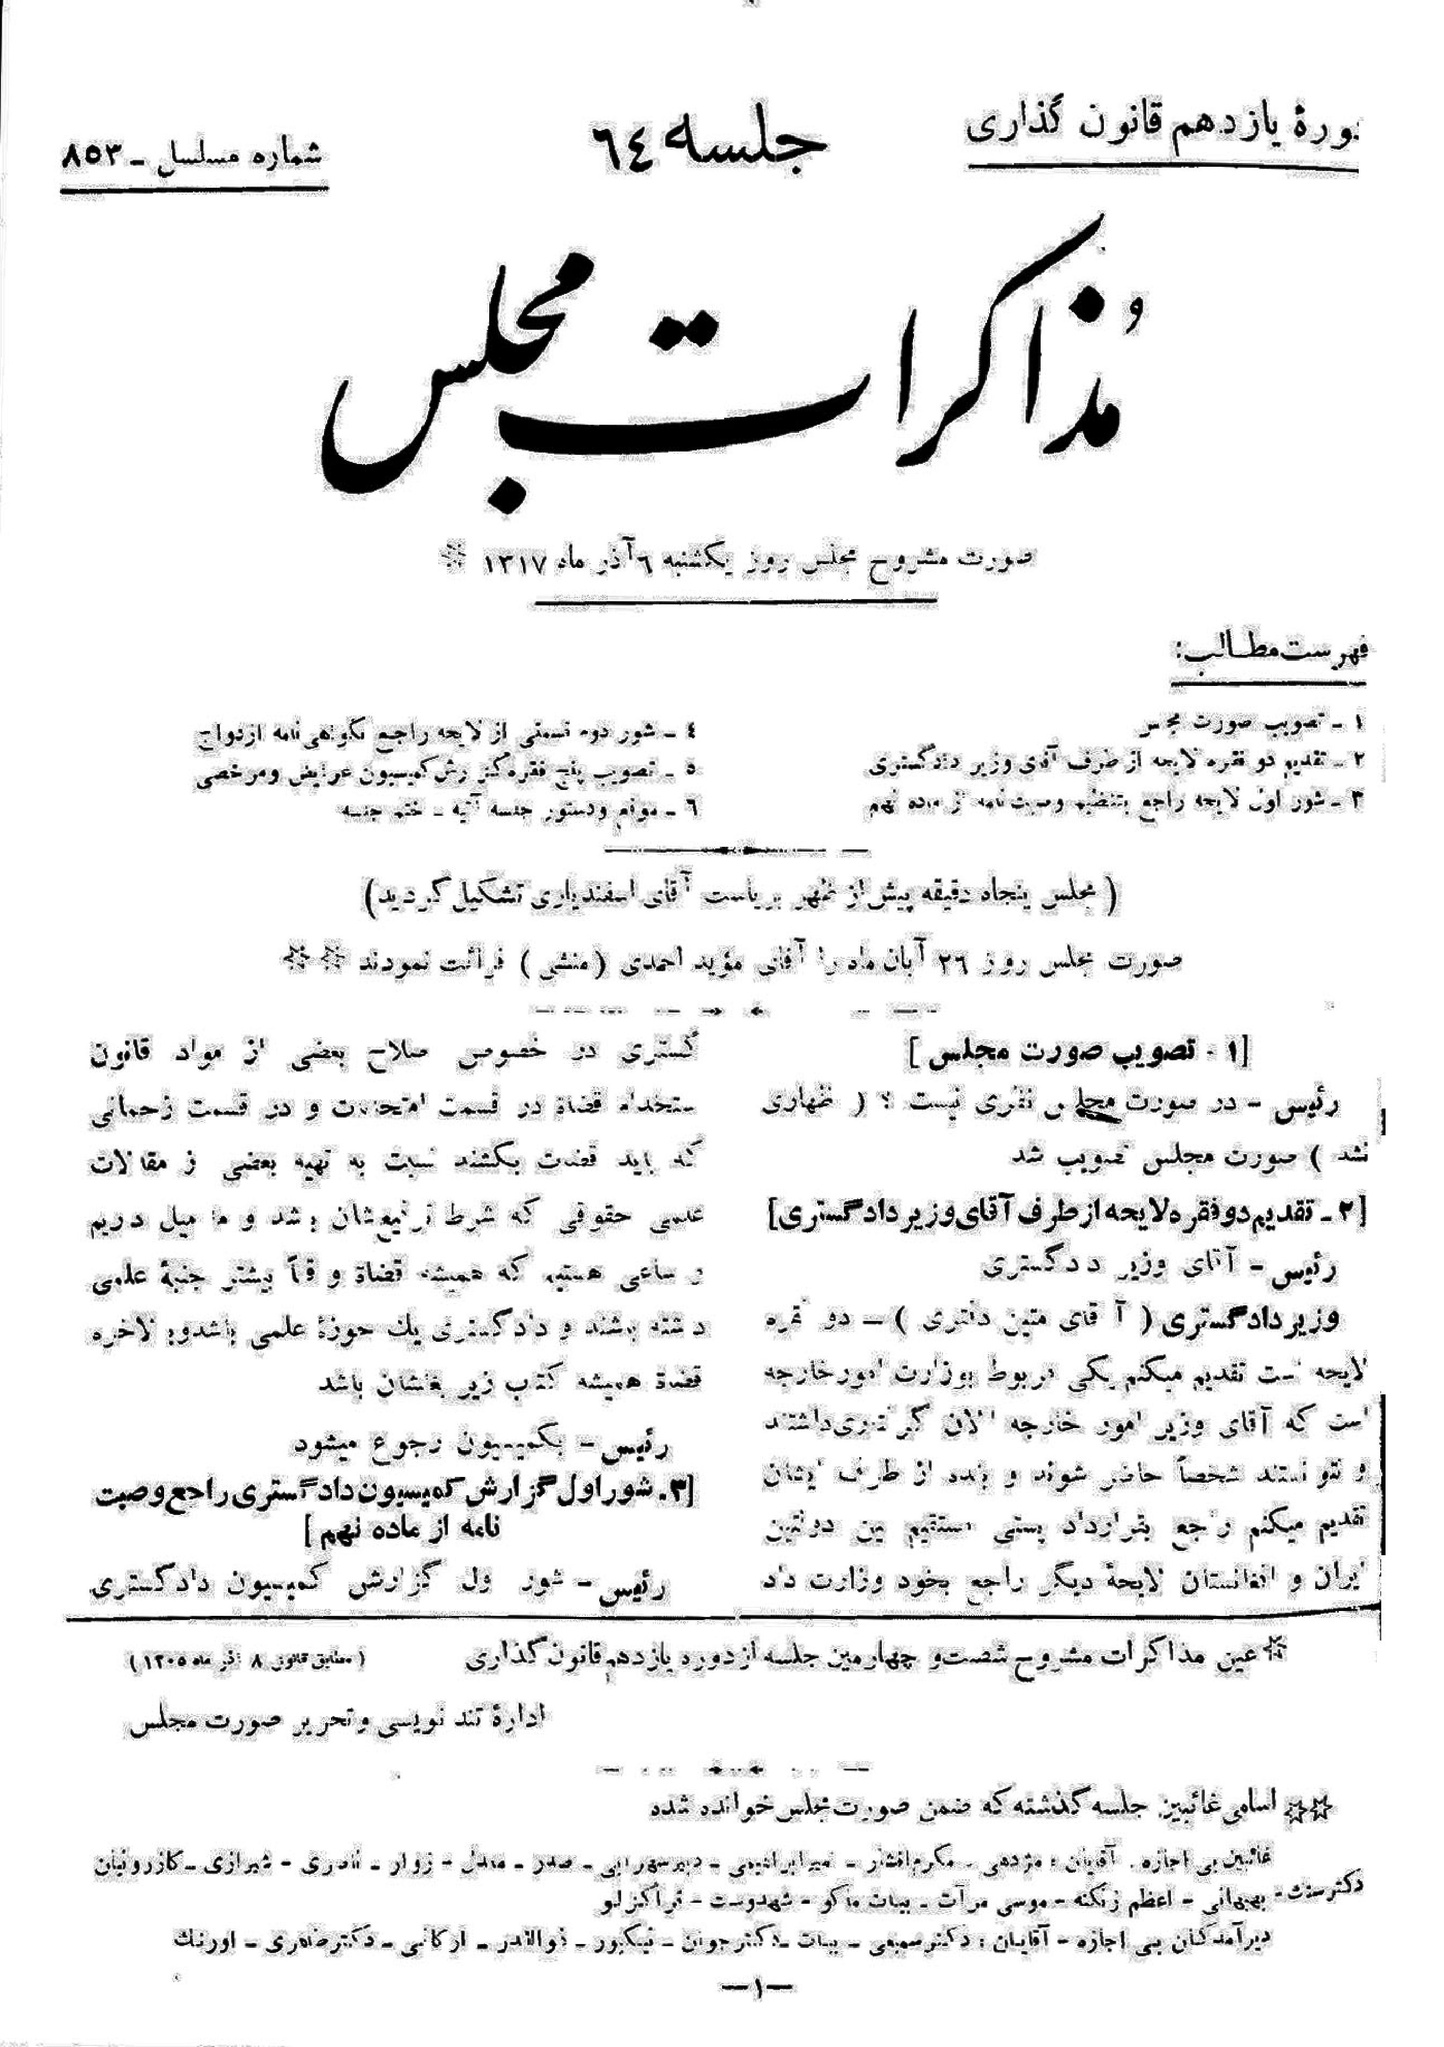 دورهٔ یازدهم قانون گذاری
جلسه ٦٤
شماره مسلسل ـ ۸۵۳
مُذاکرات مجلس
صورت مشروح مجلس روز یکشنبه ٦ آذر ماه ۱۳۱۷ ※
فهرست مطالب:
۱ ـ تصویب صورت مجلس
۲ ـ تقدیم دو فقره لایحه از طرف آقای وزیر دادگستری
۳ ـ شور اول لایحه راجع بتنظیم وصیت نامه از ماده نهم
٤ ـ شور دوم قسمتی از لایحه راجع بگواهی نامه ازدواج
۵ ـ تصویب پنج فقره گزارش کمیسیون عرایض و مرخصی
٦ ـ موقع و دستور جلسه آتیه ـ ختم جلسه
( مجلس پنجاه دقیقه پیش از ظهر بریاست آقای اسفندیاری تشکیل گردید )
صورت مجلس روز ۲٦ آبان ماه را آقای مؤید احمدی ( منشی ) قرائت نمودند ※※
[ ۱ - تصویب صورت مجلس ]
رئیس - در صورت مجلس نظری نیست ؟ ( اظهاری
نشد ) صورت مجلس تصویب شد
[ ۲ ـ تقدیم دو فقره لایحه از طرف آقای وزیر دادگستری ]
رئیس - آقای وزیر دادگستری
وزیر دادگستری ( آقای متین دفتری ) - دو فقره
لایحه است تقدیم میکنم یکی مربوط بوزارت امور خارجه
است که آقای وزیر امور خارجه الان گرفتاری داشتند
و نتوانستند شخصاً حاضر شوند و بنده از طرف ایشان
تقدیم میکنم راجع بقرارداد پستی مستقیم بین دولتین
ایران و افغانستان لایحهٔ دیگر راجع بخود وزارت داد
گستری در خصوص اصلاح بعضی از مواد قانون
استخدام قضاة در قسمت امتحانات و در قسمت زحماتی
که باید قضات بکشند نسبت به تهیه بعضی از مقالات
علمی حقوقی که شرط ترفیعشان باشد و ما میل داریم
و ساعی هستیم که همیشه قضاة واقعاً بیشتر جنبهٔ علمی
داشته باشند و دادگستری یك حوزهٔ علمی باشد و بالاخره
قضاة همیشه کتاب زیر بغلشان باشد
رئیس - بکمیسیون رجوع میشود
[ ۳ - شور اول گزارش کمیسیون دادگستری راجع وصیت
نامه از ماده نهم ]
رئیس - شور اول گزارش کمیسیون دادگستری
※ عین مذاکرات مشروح شصت و چهارمین جلسه از دوره یازدهم قانون گذاری ( مطابق قانون ۸ آذر ماه ۱۳۰۵ )
ادارهٔ تند نویسی و تحریر صورت مجلس
※※ اسامی غائبین جلسه گذشته که ضمن صورت مجلس خوانده شده
غائبین بی اجازه . آقایان : مژدهی - مکرم افشار - امیر ابراهیمی - دبیر سهرابی - صدر - معدل - زوار - ناصری - شیرازی - کازرونیان
دکتر سنك - بهبهانی - اعظم زنگنه - موسی مرآت - بیات ماکو - شهدوست - قراگزلو
دیرآمدگان بی اجازه - آقایان : دکتر سمیعی - بیات - دکتر جوان - نیکپور - ذوالقدر - ارکانی - دکتر طاهری - اورنك
—۱—